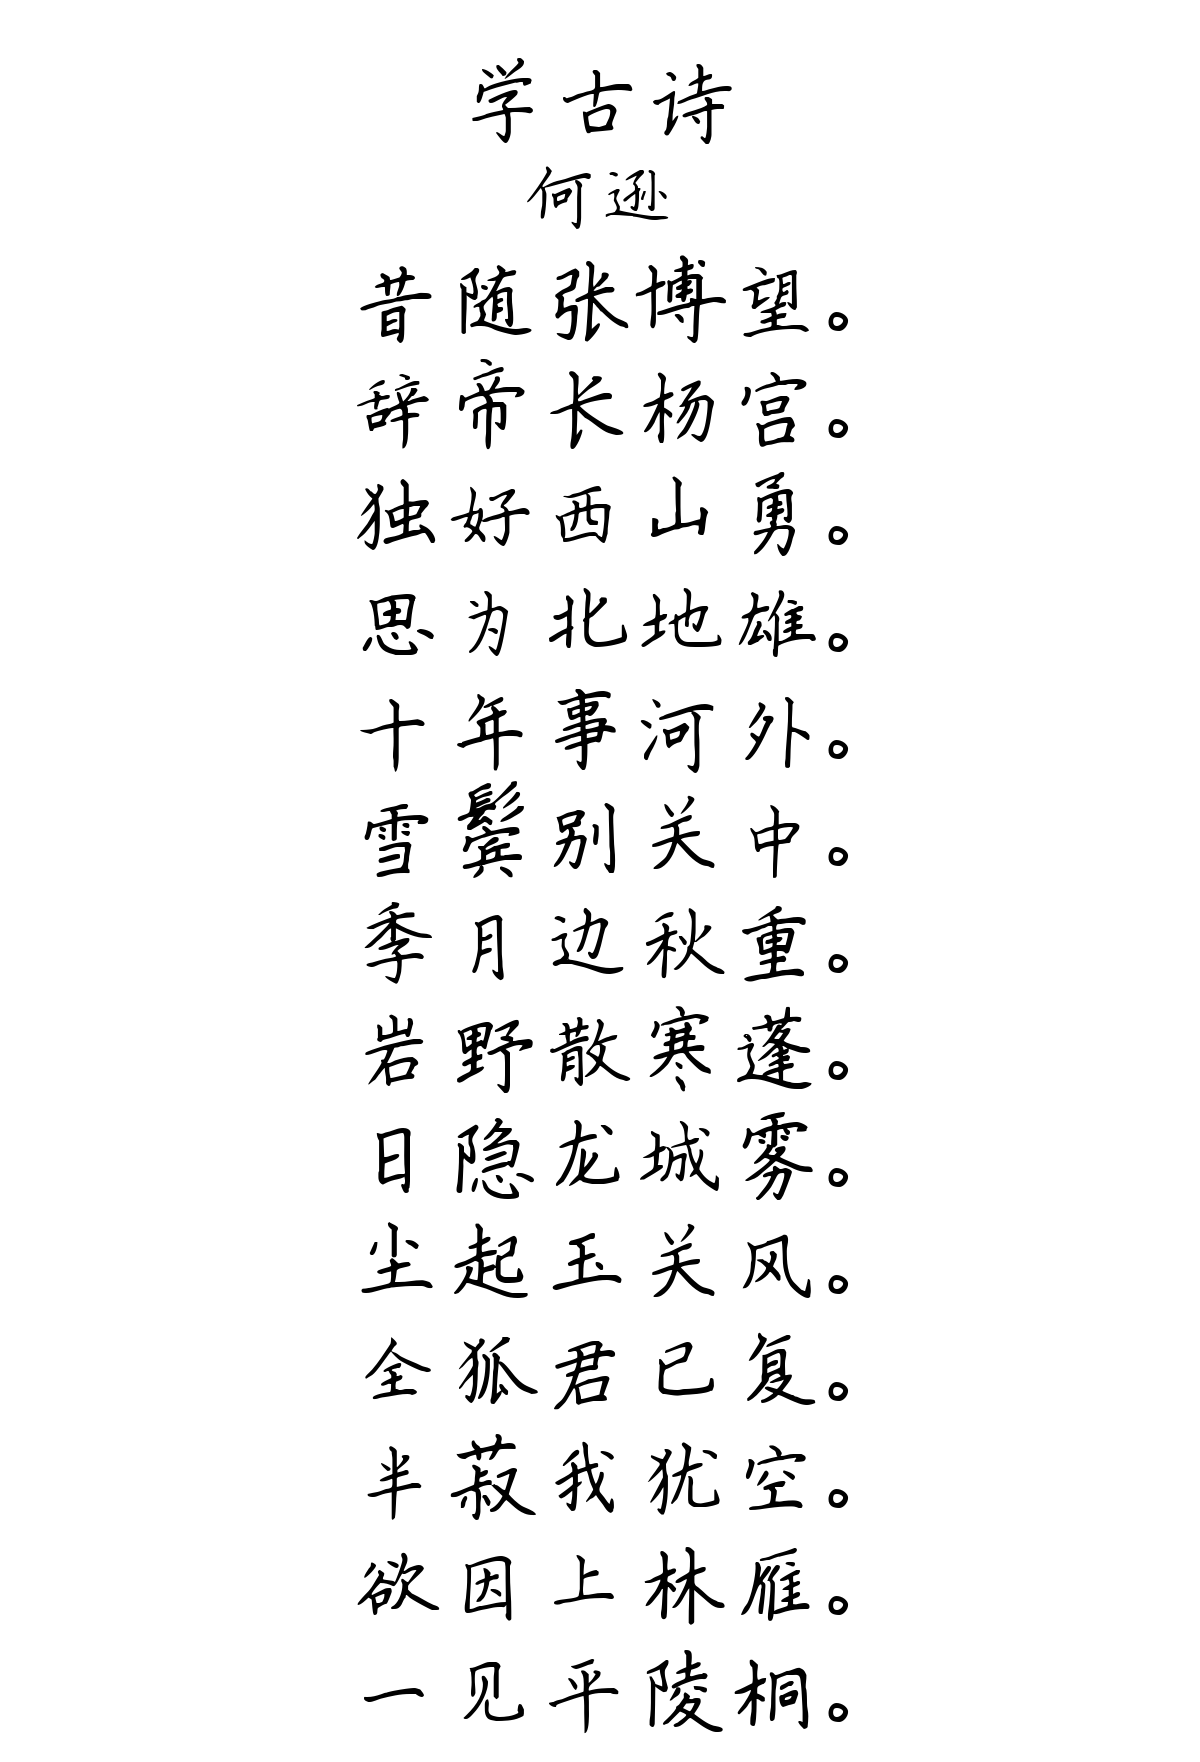 学古诗
何逊
昔随张博望。
辞帝长杨宫。
独好西山勇。
思为北地雄。
十年事河外。
雪鬓别关中。
季月边秋重。
岩野散寒蓬。
日隐龙城雾。
尘起玉关风。
全狐君已复。
半菽我犹空。
欲因上林雁。
一见平陵桐。